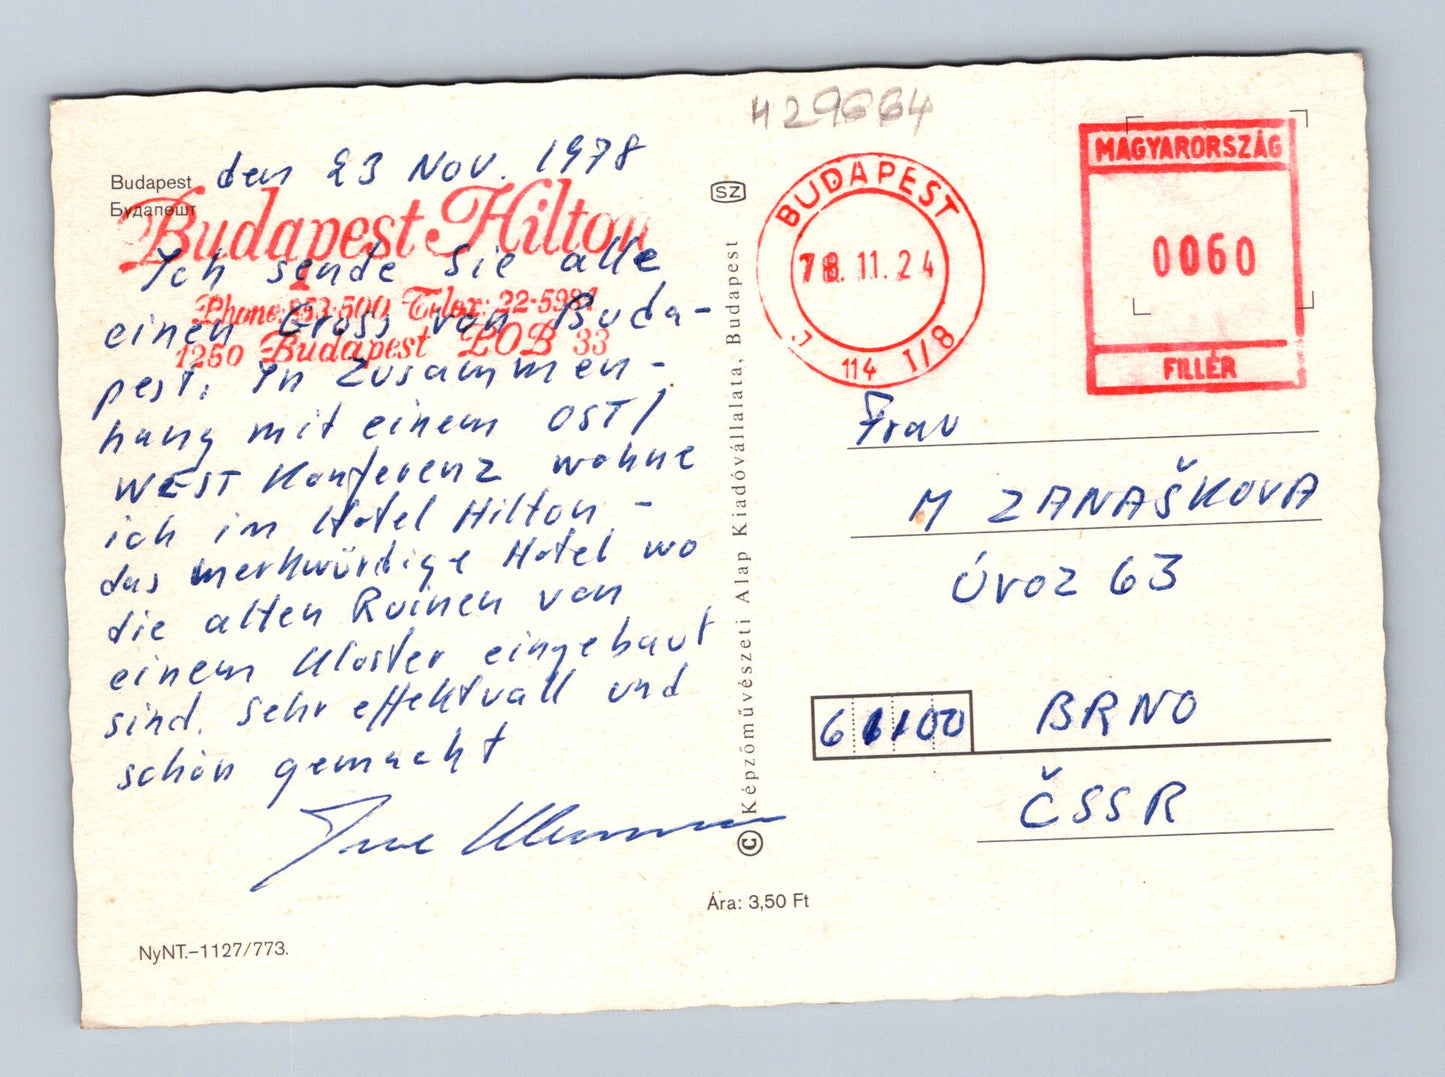 H 29664
Budapest
Будапешт
den 23 Nov. 1978
Budapest Hilton
Phone: 853-500 Telex: 22-5984
1250 Budapest POB 33
Ich sende Sie alle
einen Gross von Buda-
pest. In Zusammen-
hang mit einem OST/
WEST Konferenz wohne
ich im Hotel Hilton -
das merkwürdige Hotel wo
die alten Ruinen von
einem Kloster eingebaut
sind. Sehr effektvall und
schön gemacht
NyNT.-1127/773.
SZ
© Képzőművészeti Alap Kiadóvállalata, Budapest
Ára: 3,50 Ft
BUDAPEST
78.11.24
114 I/8
MAGYARORSZÁG
0060
FILLÉR
Frau
M ZANAŠKOVA
Úvoz 63
61100 BRNO
ČSSR